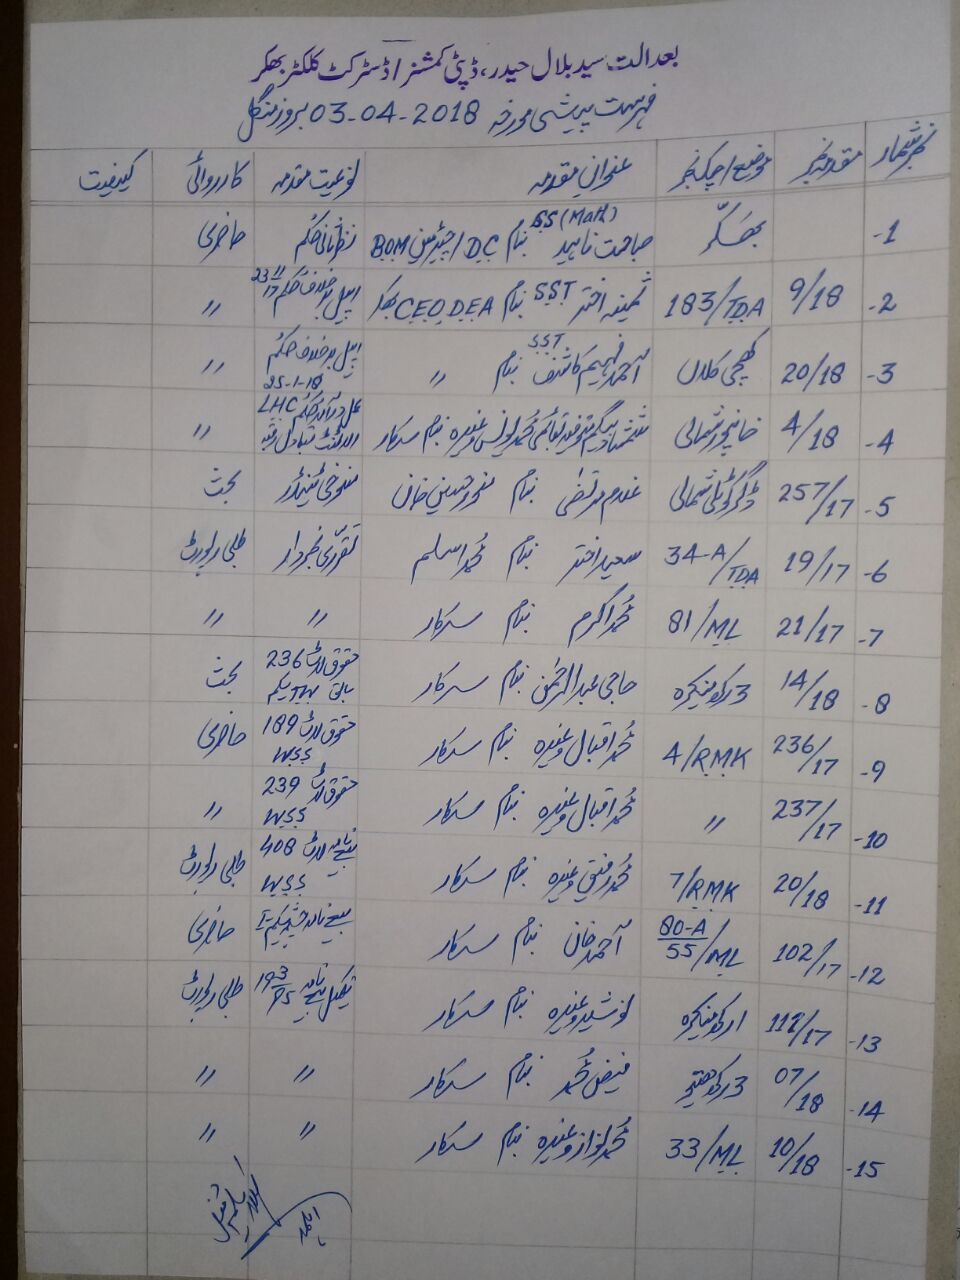 بعدالت سید بلال حیدر، ڈپٹی کمشنر/ڈسٹرکٹ کلکٹر بھکر
فہرست پیشی مورخہ 03-04-2018 بروز منگل
نمبر شمار مقدمہ نمبر موضع/چک نمبر عنوان مقدمہ نوعیت مقدمہ کارروائی کیفیت
1- بھکر صباحت ناہید SS (Math) بنام DC/چیئرمین BOM نظرثانی حکم حاضری
2- 9/18 183/TDA ثمینہ اختر SST بنام CEO DEA بھکر اپیل برخلاف حکم 23/11/17 〃
3- 20/18 کھچی کلاں احمد فہیم کاشف SST بنام 〃 اپیل برخلاف حکم 25-1-18 〃
4- 4/18 خانپور شمالی شمشاد بیگم محمد یونس وغیرہ بنام سرکار عملدرآمد حکم LHC 〃
5- 257/17 ڈگر کوٹلی شمالی غلام مرتضیٰ بنام خان منسوخی بحث
6- 19/17 34-A/TDA سعید اختر بنام محمد اسلم تقرری نمبردار طلبی رپورٹ
7- 21/17 81/ML محمد اکرم بنام سرکار 〃 〃
8- 14/18 3 رکھ منکیرہ حاجی عبدالرحمٰن بنام سرکار حقوق لاٹ 236 بحث
9- 236/17 4/RMK محمد اقبال وغیرہ بنام سرکار حقوق لاٹ 189 WSS حاضری
10- 237/17 〃 محمد اقبال وغیرہ بنام سرکار حقوق لاٹ 239 WSS 〃
11- 20/18 7/RMK محمد رفیق وغیرہ بنام سرکار بیع نامہ لاٹ 408 WSS طلبی رپورٹ
12- 102/17 80-A/55/ML احمد خان بنام سرکار بیع نامہ سکیم I حاضری
13- 112/17 1 رکھ منکیرہ وغیرہ بنام سرکار تکمیل بیع نامہ 193/PS طلبی رپورٹ
14- 07/18 3 رکھ فیض محمد بنام سرکار 〃 〃
15- 10/18 33/ML محمد نواز وغیرہ بنام سرکار 〃 〃
اہلمد